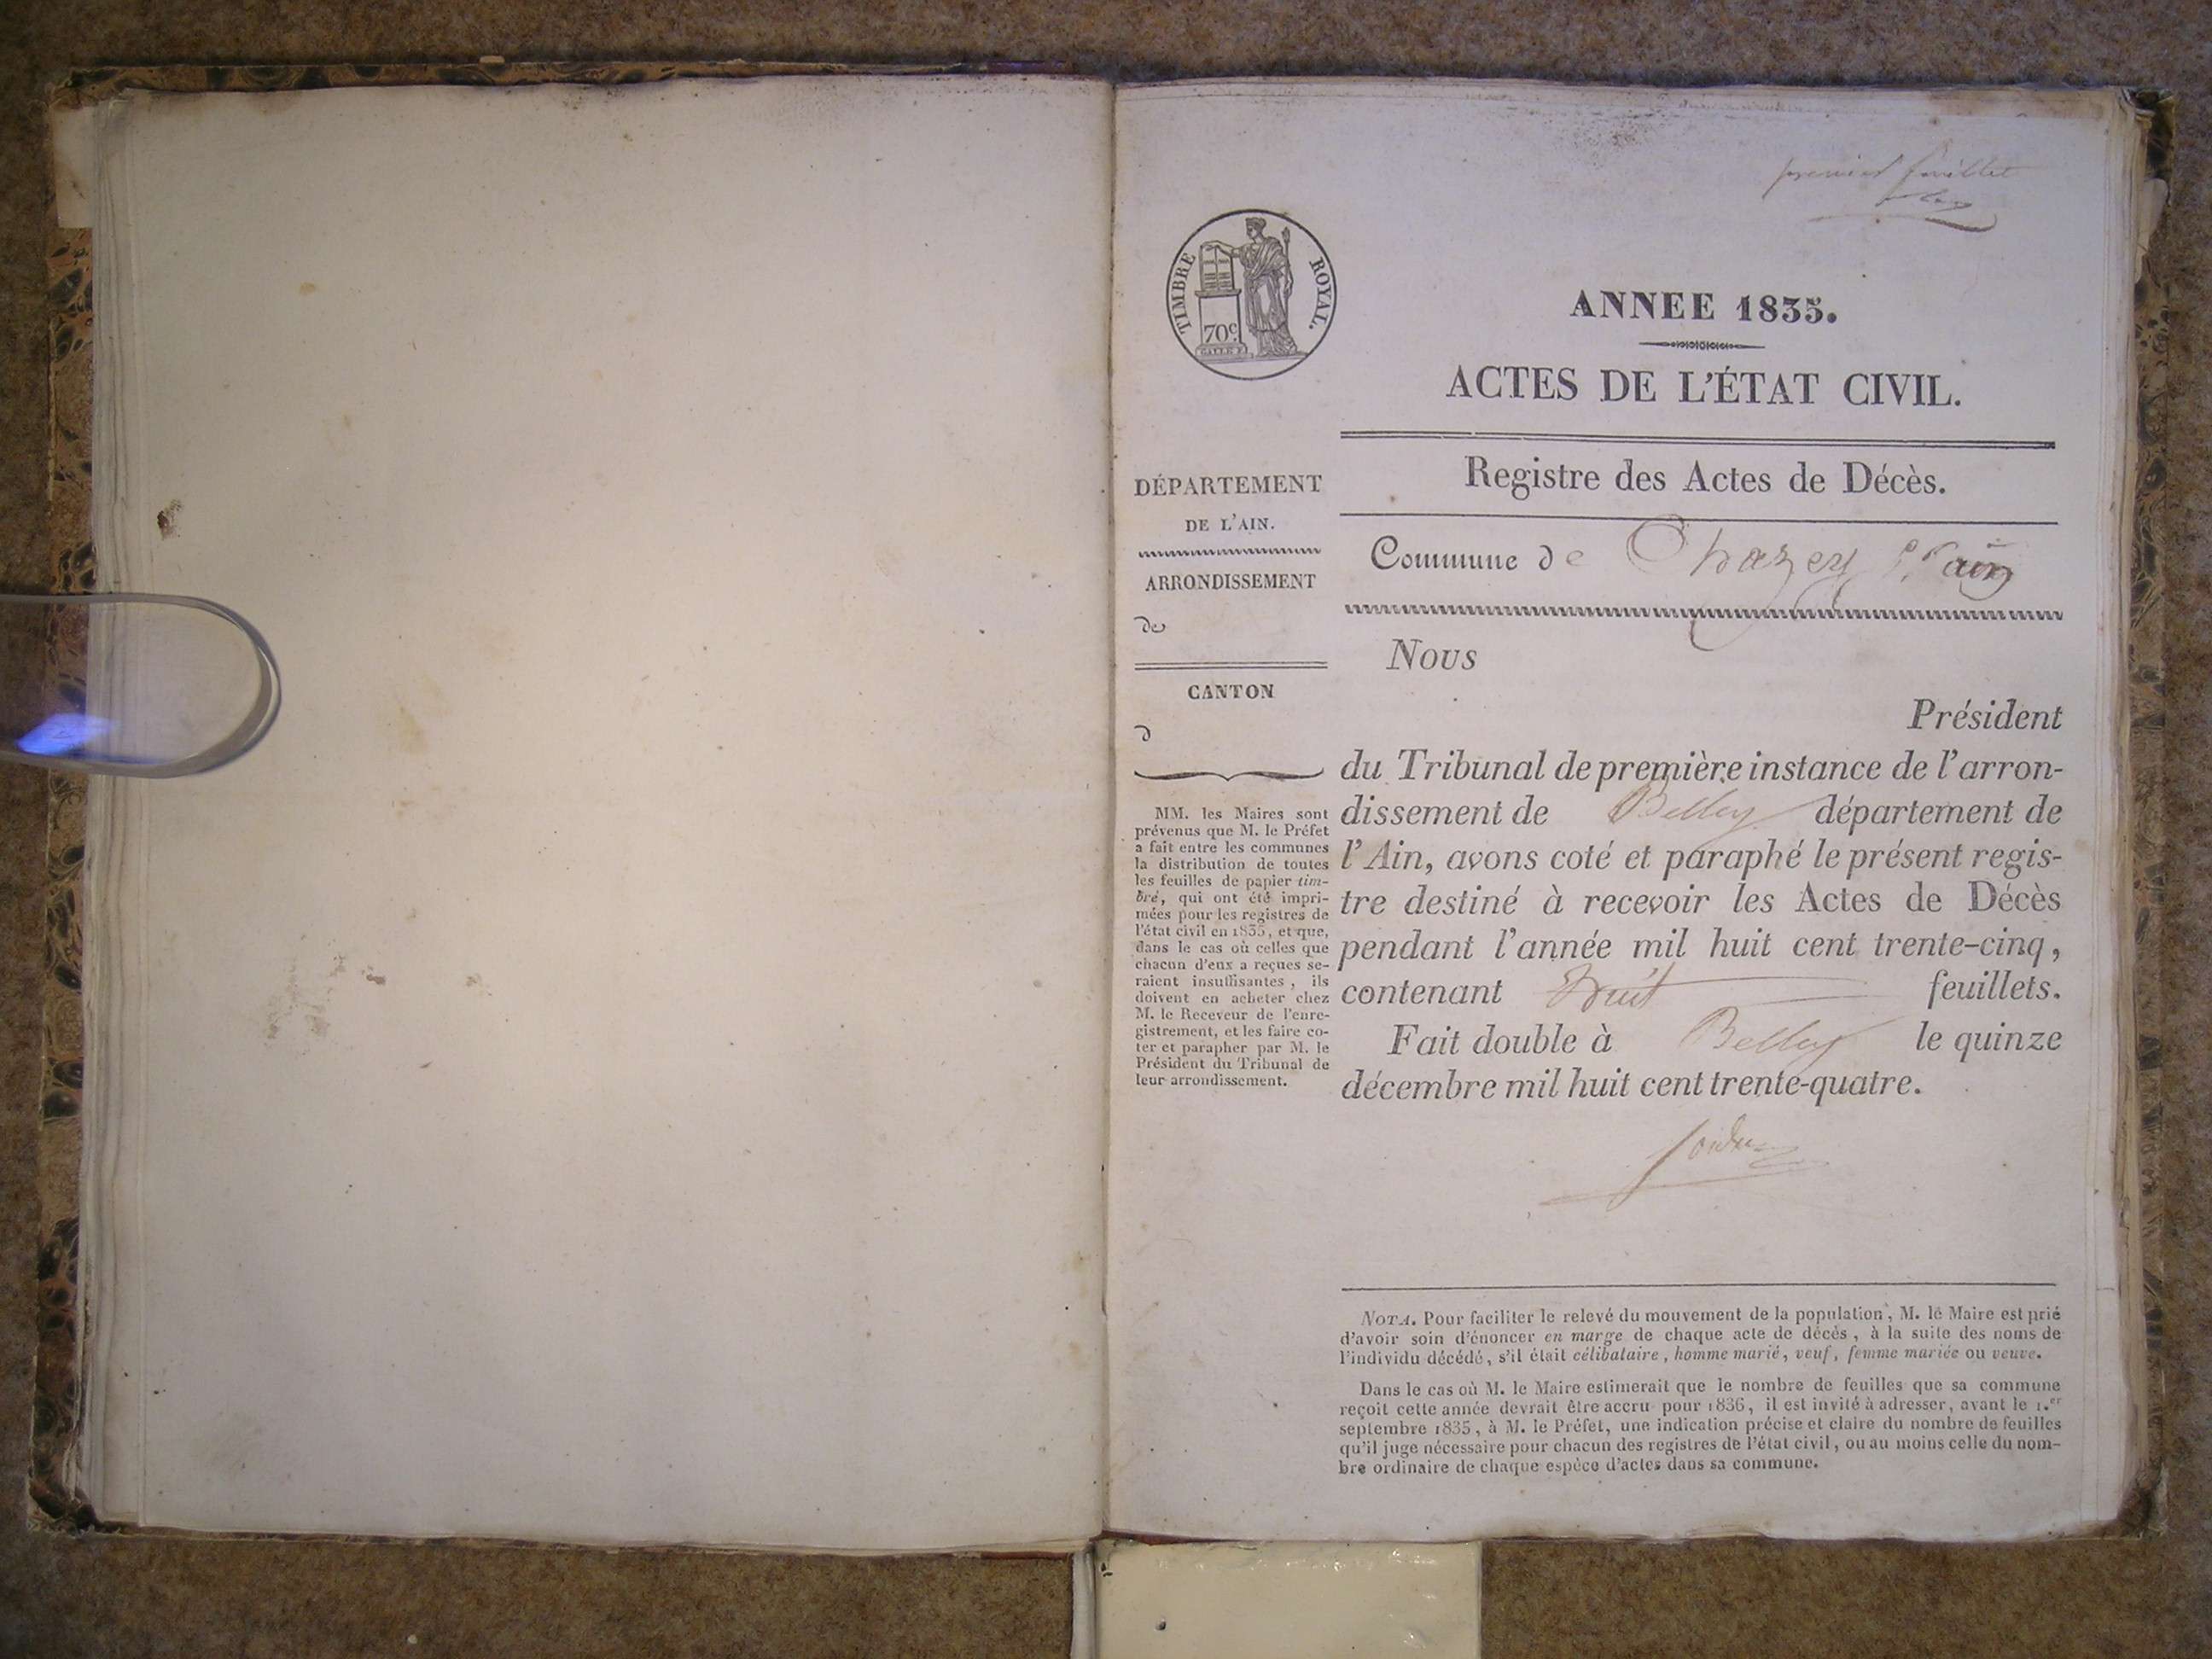 premier feuillet
TIMBRE ROYAL.
70c.
ANNEE 1835.
ACTES DE L'ÉTAT CIVIL.
Registre des Actes de Décès.
Commune de Chazey S. ain
DÉPARTEMENT
DE L'AIN.
ARRONDISSEMENT
de
CANTON
d
MM. les Maires sont
prévenus que M. le Préfet
a fait entre les communes
la distribution de toutes
les feuilles de papier tim-
bré, qui ont été impri-
mées pour les registres de
l'état civil en 1835, et que,
dans le cas où celles que
chacun d'eux a reçues se-
raient insuffisantes, ils
doivent en acheter chez
M. le Receveur de l'enre-
gistrement, et les faire co-
ter et parapher par M. le
Président du Tribunal de
leur arrondissement.
Nous
Président
du Tribunal de première instance de l'arron-
dissement de Belley département de
l'Ain, avons coté et paraphé le présent regis-
tre destiné à recevoir les Actes de Décès
pendant l'année mil huit cent trente-cinq,
contenant huit feuillets.
Fait double à Belley le quinze
décembre mil huit cent trente-quatre.
NOTA. Pour faciliter le relevé du mouvement de la population, M. le Maire est prié
d'avoir soin d'énoncer en marge de chaque acte de décès, à la suite des noms de
l'individu décédé, s'il était célibataire, homme marié, veuf, femme mariée ou veuve.
Dans le cas où M. le Maire estimerait que le nombre de feuilles que sa commune
reçoit cette année devrait être accru pour 1836, il est invité à adresser, avant le 1.er
septembre 1835, à M. le Préfet, une indication précise et claire du nombre de feuilles
qu'il juge nécessaire pour chacun des registres de l'état civil, ou au moins celle du nom-
bre ordinaire de chaque espèce d'actes dans sa commune.